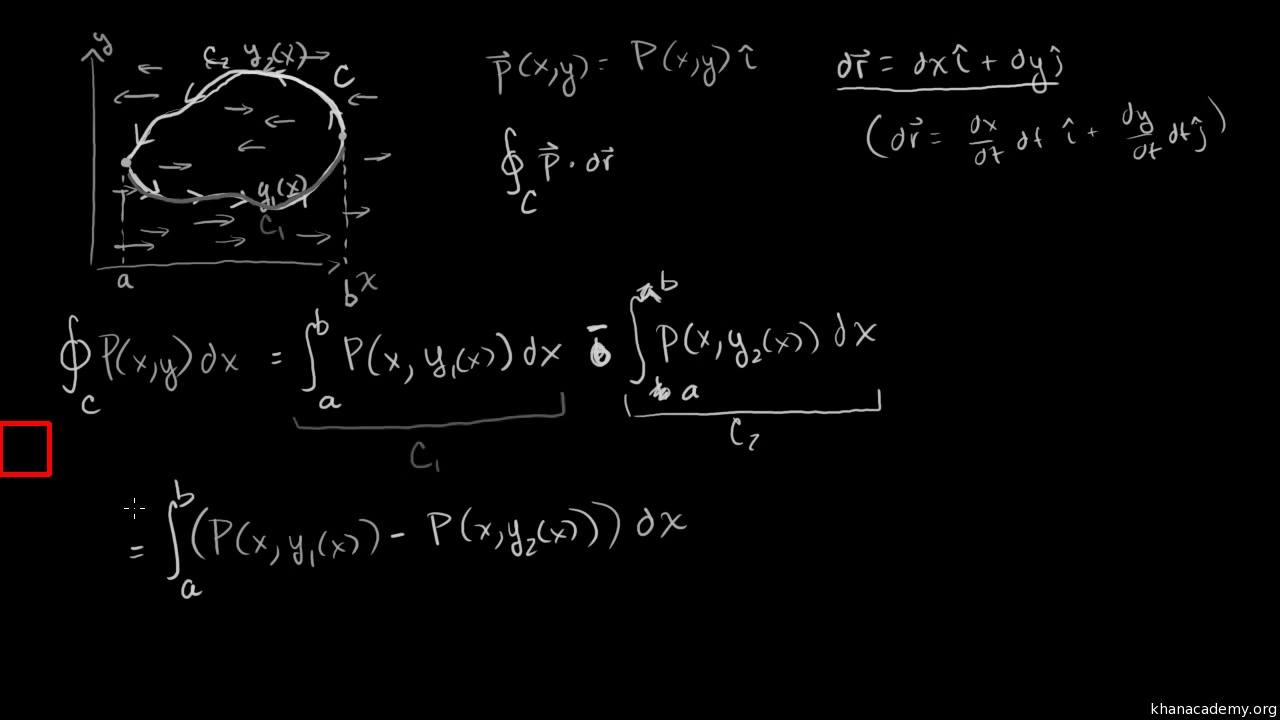 y
C₂ y₂(x)
C
y₁(x)
C₁
a
b x
P⃗(x,y) = P(x,y) î
∮_C P⃗ · dr⃗
dr⃗ = dx î + dy ĵ
(dr⃗ = dx/dt dt î + dy/dt dt ĵ)
∮_C P(x,y) dx = ∫_a^b P(x, y₁(x)) dx - ∫_a^b P(x, y₂(x)) dx
C₁
C₂
= ∫_a^b (P(x, y₁(x)) - P(x, y₂(x))) dx
khanacademy.org